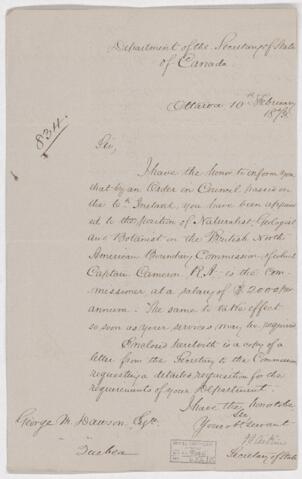 Department of the Secretary of State
of Canada.
Ottawa 10th February
1873.
834.
Sir,
I have the honor to inform you
that by an Order in Council passed on
the 6th Instant, you have been appoin-
ed to the position of Naturalist, Geologist
and Botanist on the British North
American Boundary Commission of which
Captain Cameron R.A. is the com-
missioner at a salary of $2000 per
annum. The same to take effect
so soon as your services may be required
Enclosed herewith is a copy of a
letter from the Secretary to the Commission
requesting a detailed requisition for the
requirements of your Department.
I have the honor to be
Sir,
Your obt servant
Secretary of State
George M. Dawson, Esqre.
Quebec